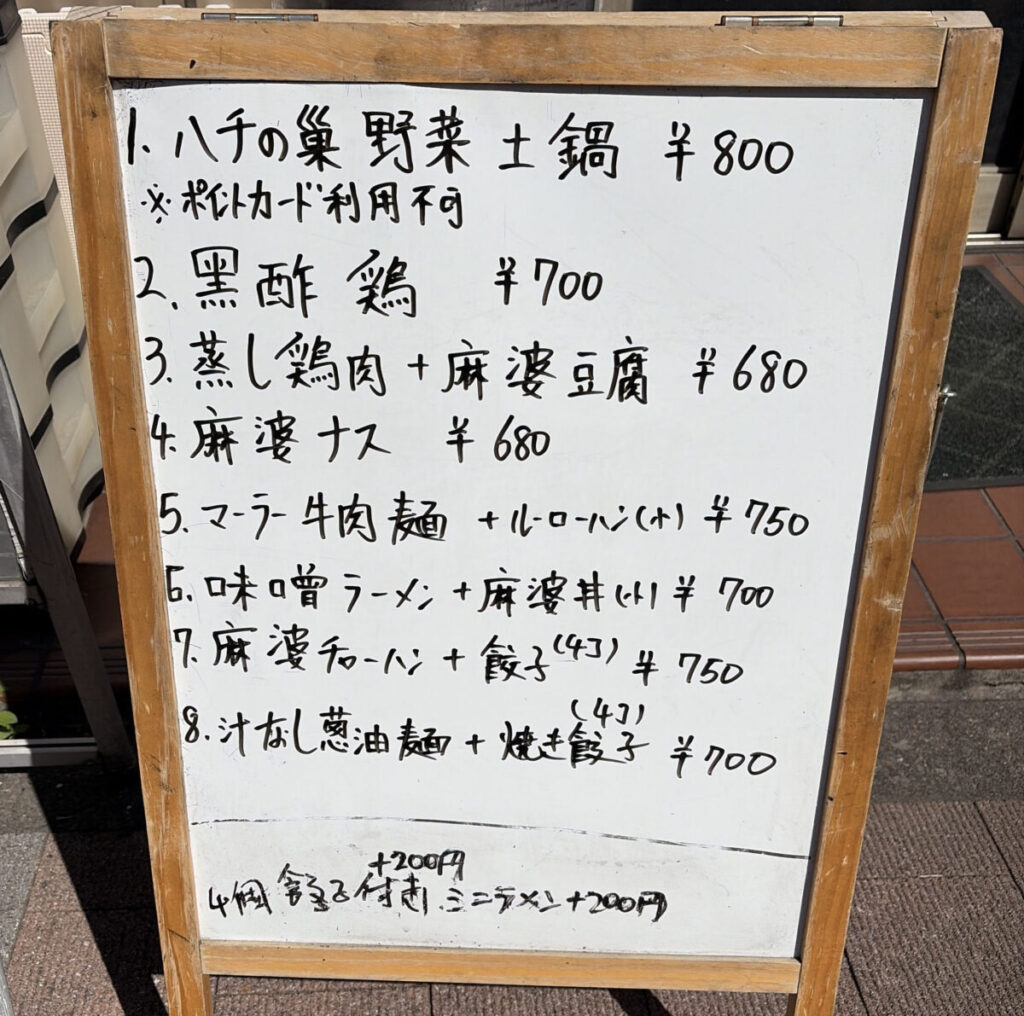 1. ハチの巣 野菜 土鍋 ¥800
※ポイントカード利用不可
2. 黒酢 鶏 ¥700
3. 蒸し鶏肉+麻婆豆腐 ¥680
4. 麻婆ナス ¥680
5. マーラー牛肉麺 +ルーローハン(小) ¥750
6. 味噌ラーメン+麻婆丼(小) ¥700
7. 麻婆チャーハン+餃子(4コ) ¥750
8. 汁なし葱油麺+焼き餃子(4コ) ¥700
+200円
4個餃子付き、ミニラーメン+200円